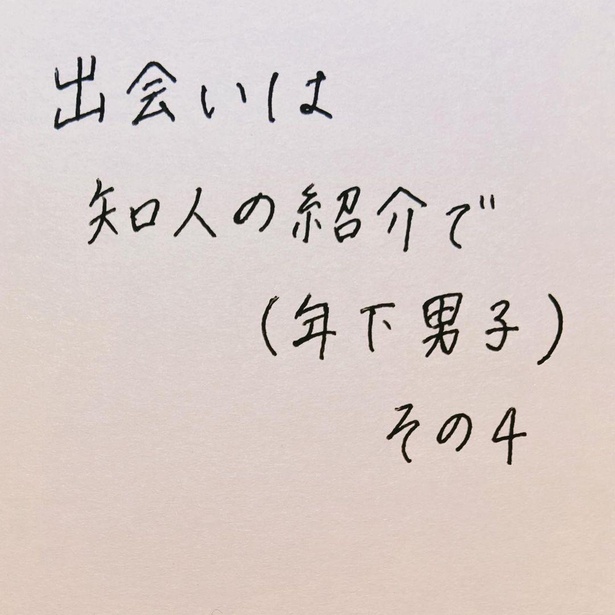 出会いは
知人の紹介で
(年下男子)
その4